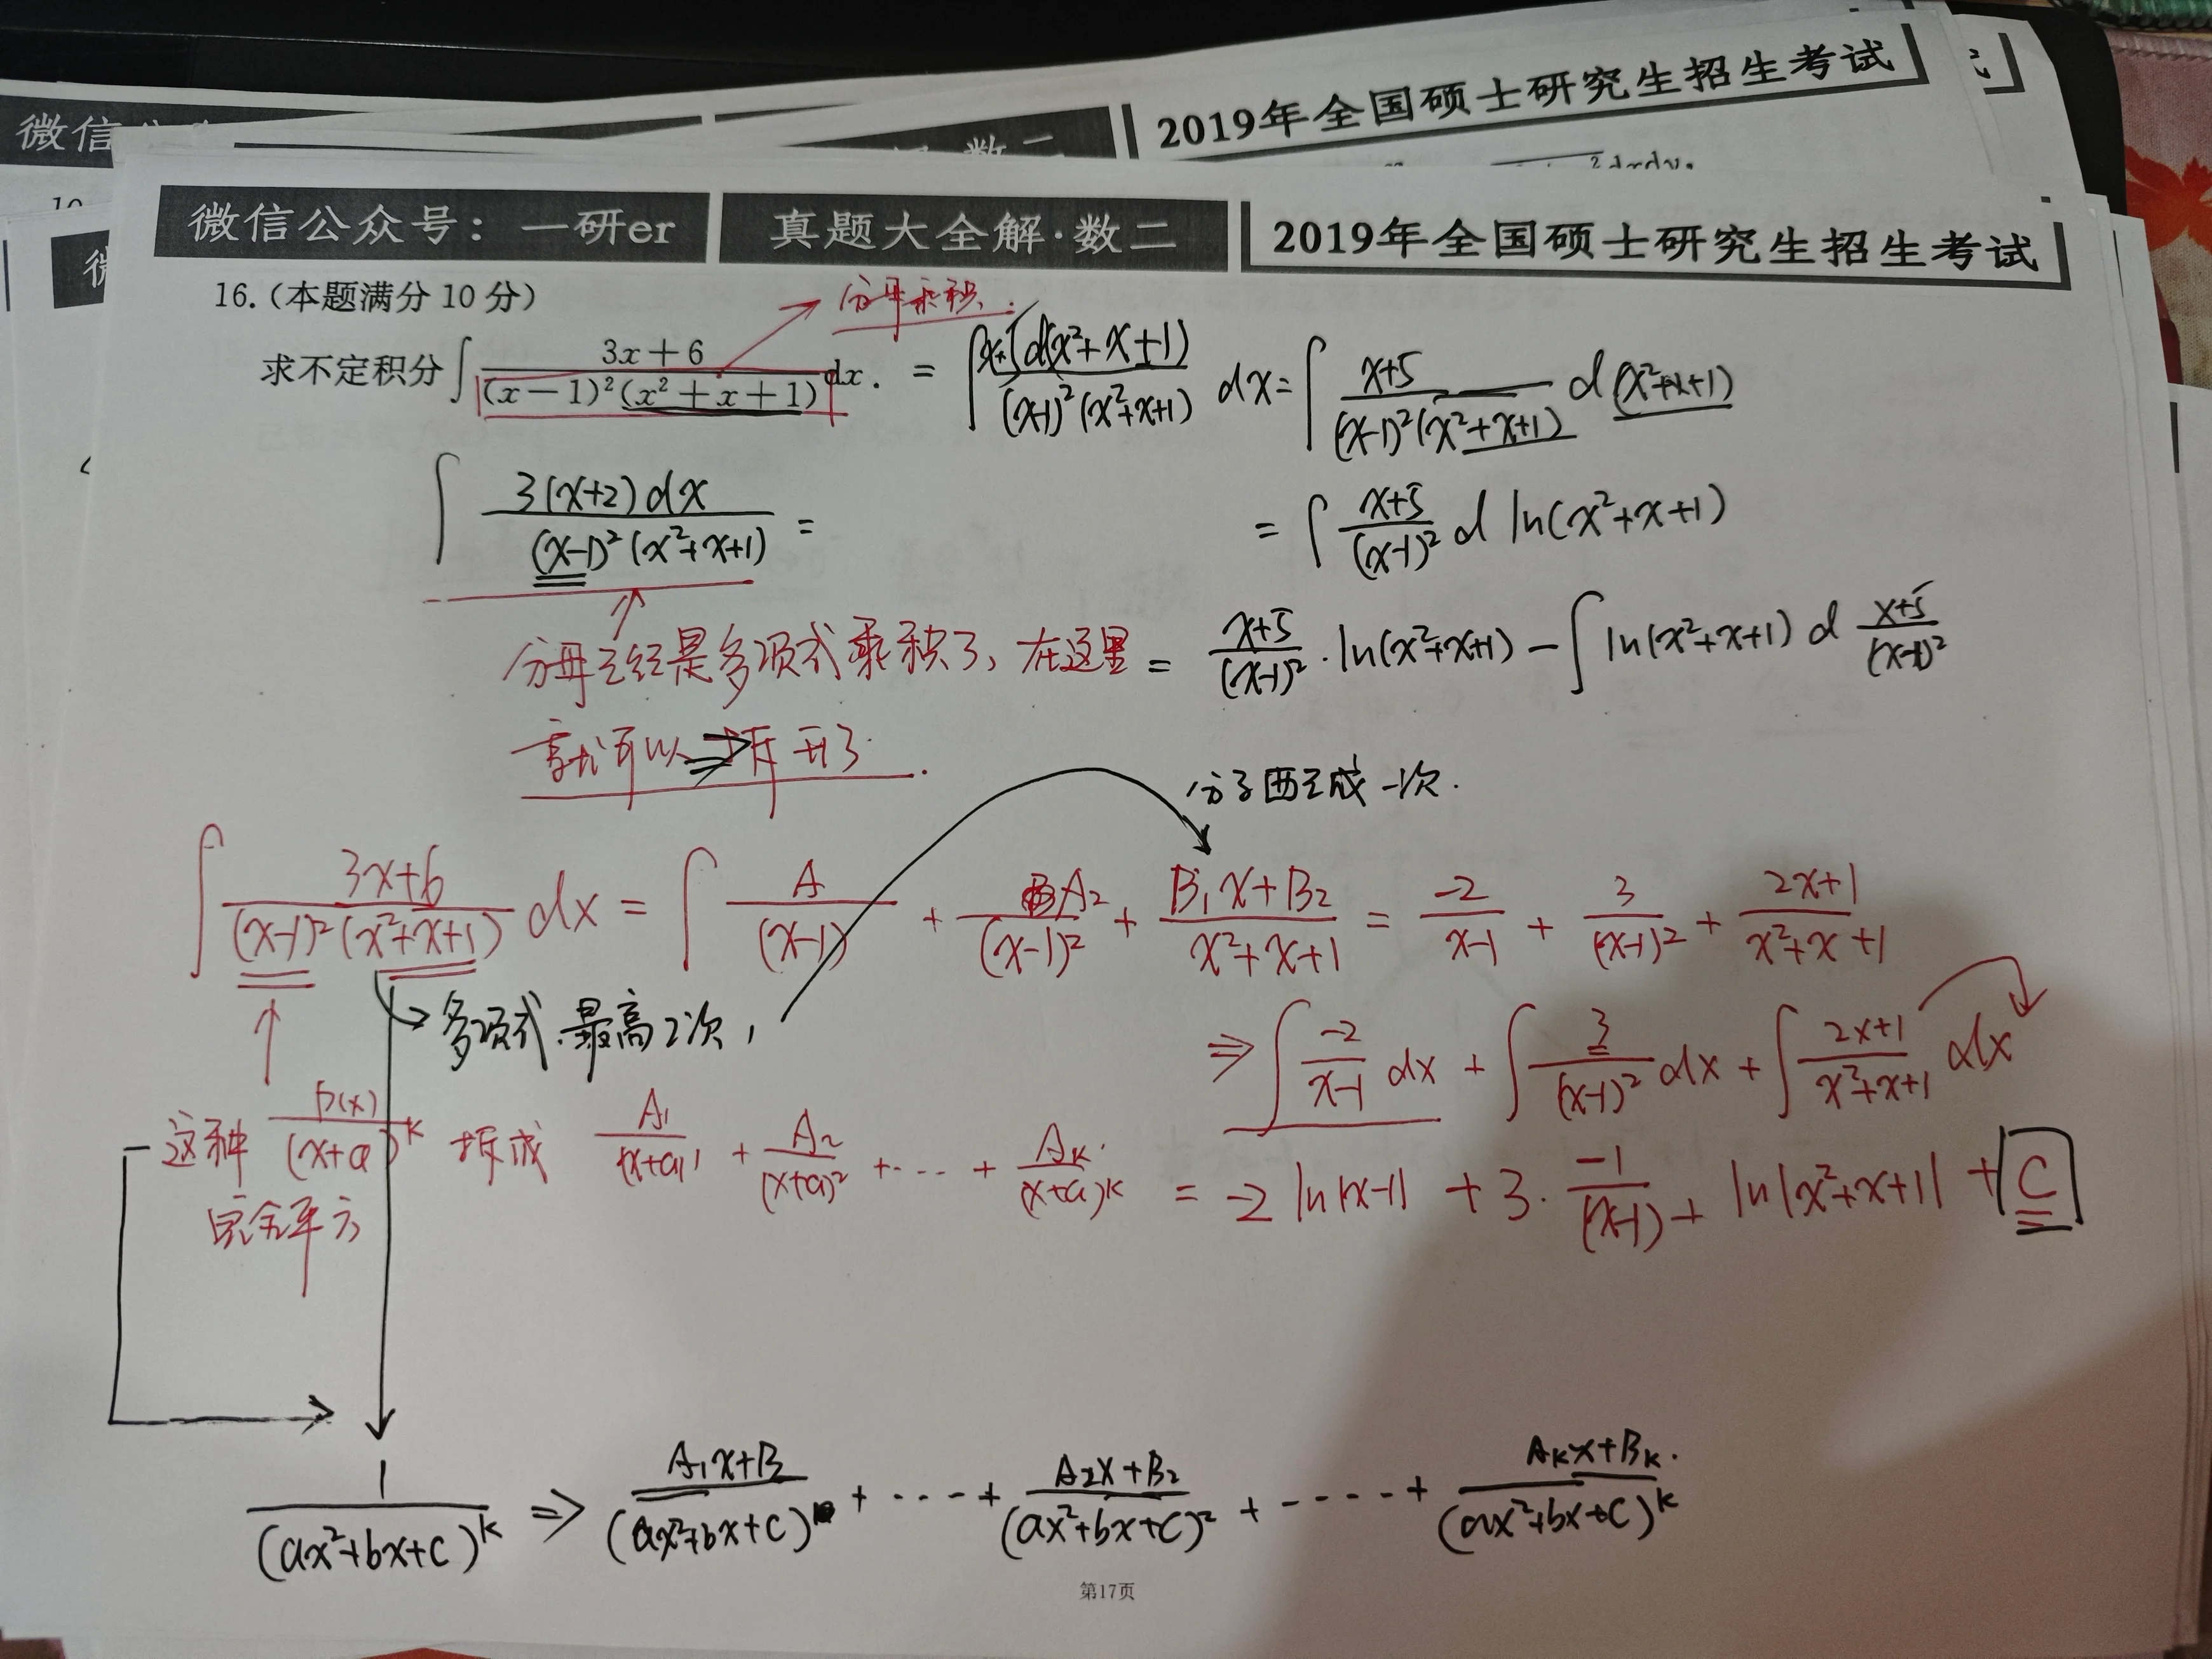 微信
数二
2019年全国硕士研究生招生考试
微信公众号：一研er 真题大全解·数二 2019年全国硕士研究生招生考试
16.（本题满分 10 分）
分母乘积.
求不定积分∫ (3x+6)/((x-1)²(x²+x+1)) dx. = ∫ d(x²+x+1)/((x-1)²(x²+x+1)) dx = ∫ (x+5)/((x-1)²(x²+x+1)) d(x²+x+1)
∫ 3(x+2)dx/((x-1)²(x²+x+1)) =
= ∫ (x+5)/(x-1)² d ln(x²+x+1)
分母已经是多项式乘积了, 在这里
= (x+5)/(x-1)² · ln(x²+x+1) - ∫ ln(x²+x+1) d (x+5)/(x-1)²
就可以⇒拆开了.
分子要写成一次.
∫ (3x+6)/((x-1)²(x²+x+1)) dx = ∫ A/(x-1) + A₂/(x-1)² + (B₁x+B₂)/(x²+x+1) = -2/(x-1) + 3/(x-1)² + (2x+1)/(x²+x+1)
多项式.最高2次,
⇒ ∫ -2/(x-1) dx + ∫ 3/(x-1)² dx + ∫ (2x+1)/(x²+x+1) dx
这种 P(x)/(x+a)^k 拆成 A₁/(x+a)¹ + A₂/(x+a)² + ··· + A_k/(x+a)^k
= -2 ln|x-1| + 3· -1/(x-1) + ln|x²+x+1| + C
完全平方
1/(ax²+bx+c)^k ⇒ (A₁x+B)/(ax²+bx+c) + ···· + (A₂x+B₂)/(ax²+bx+c)² + ····· + (A_kx+B_k)/(ax²+bx+c)^k
第17页